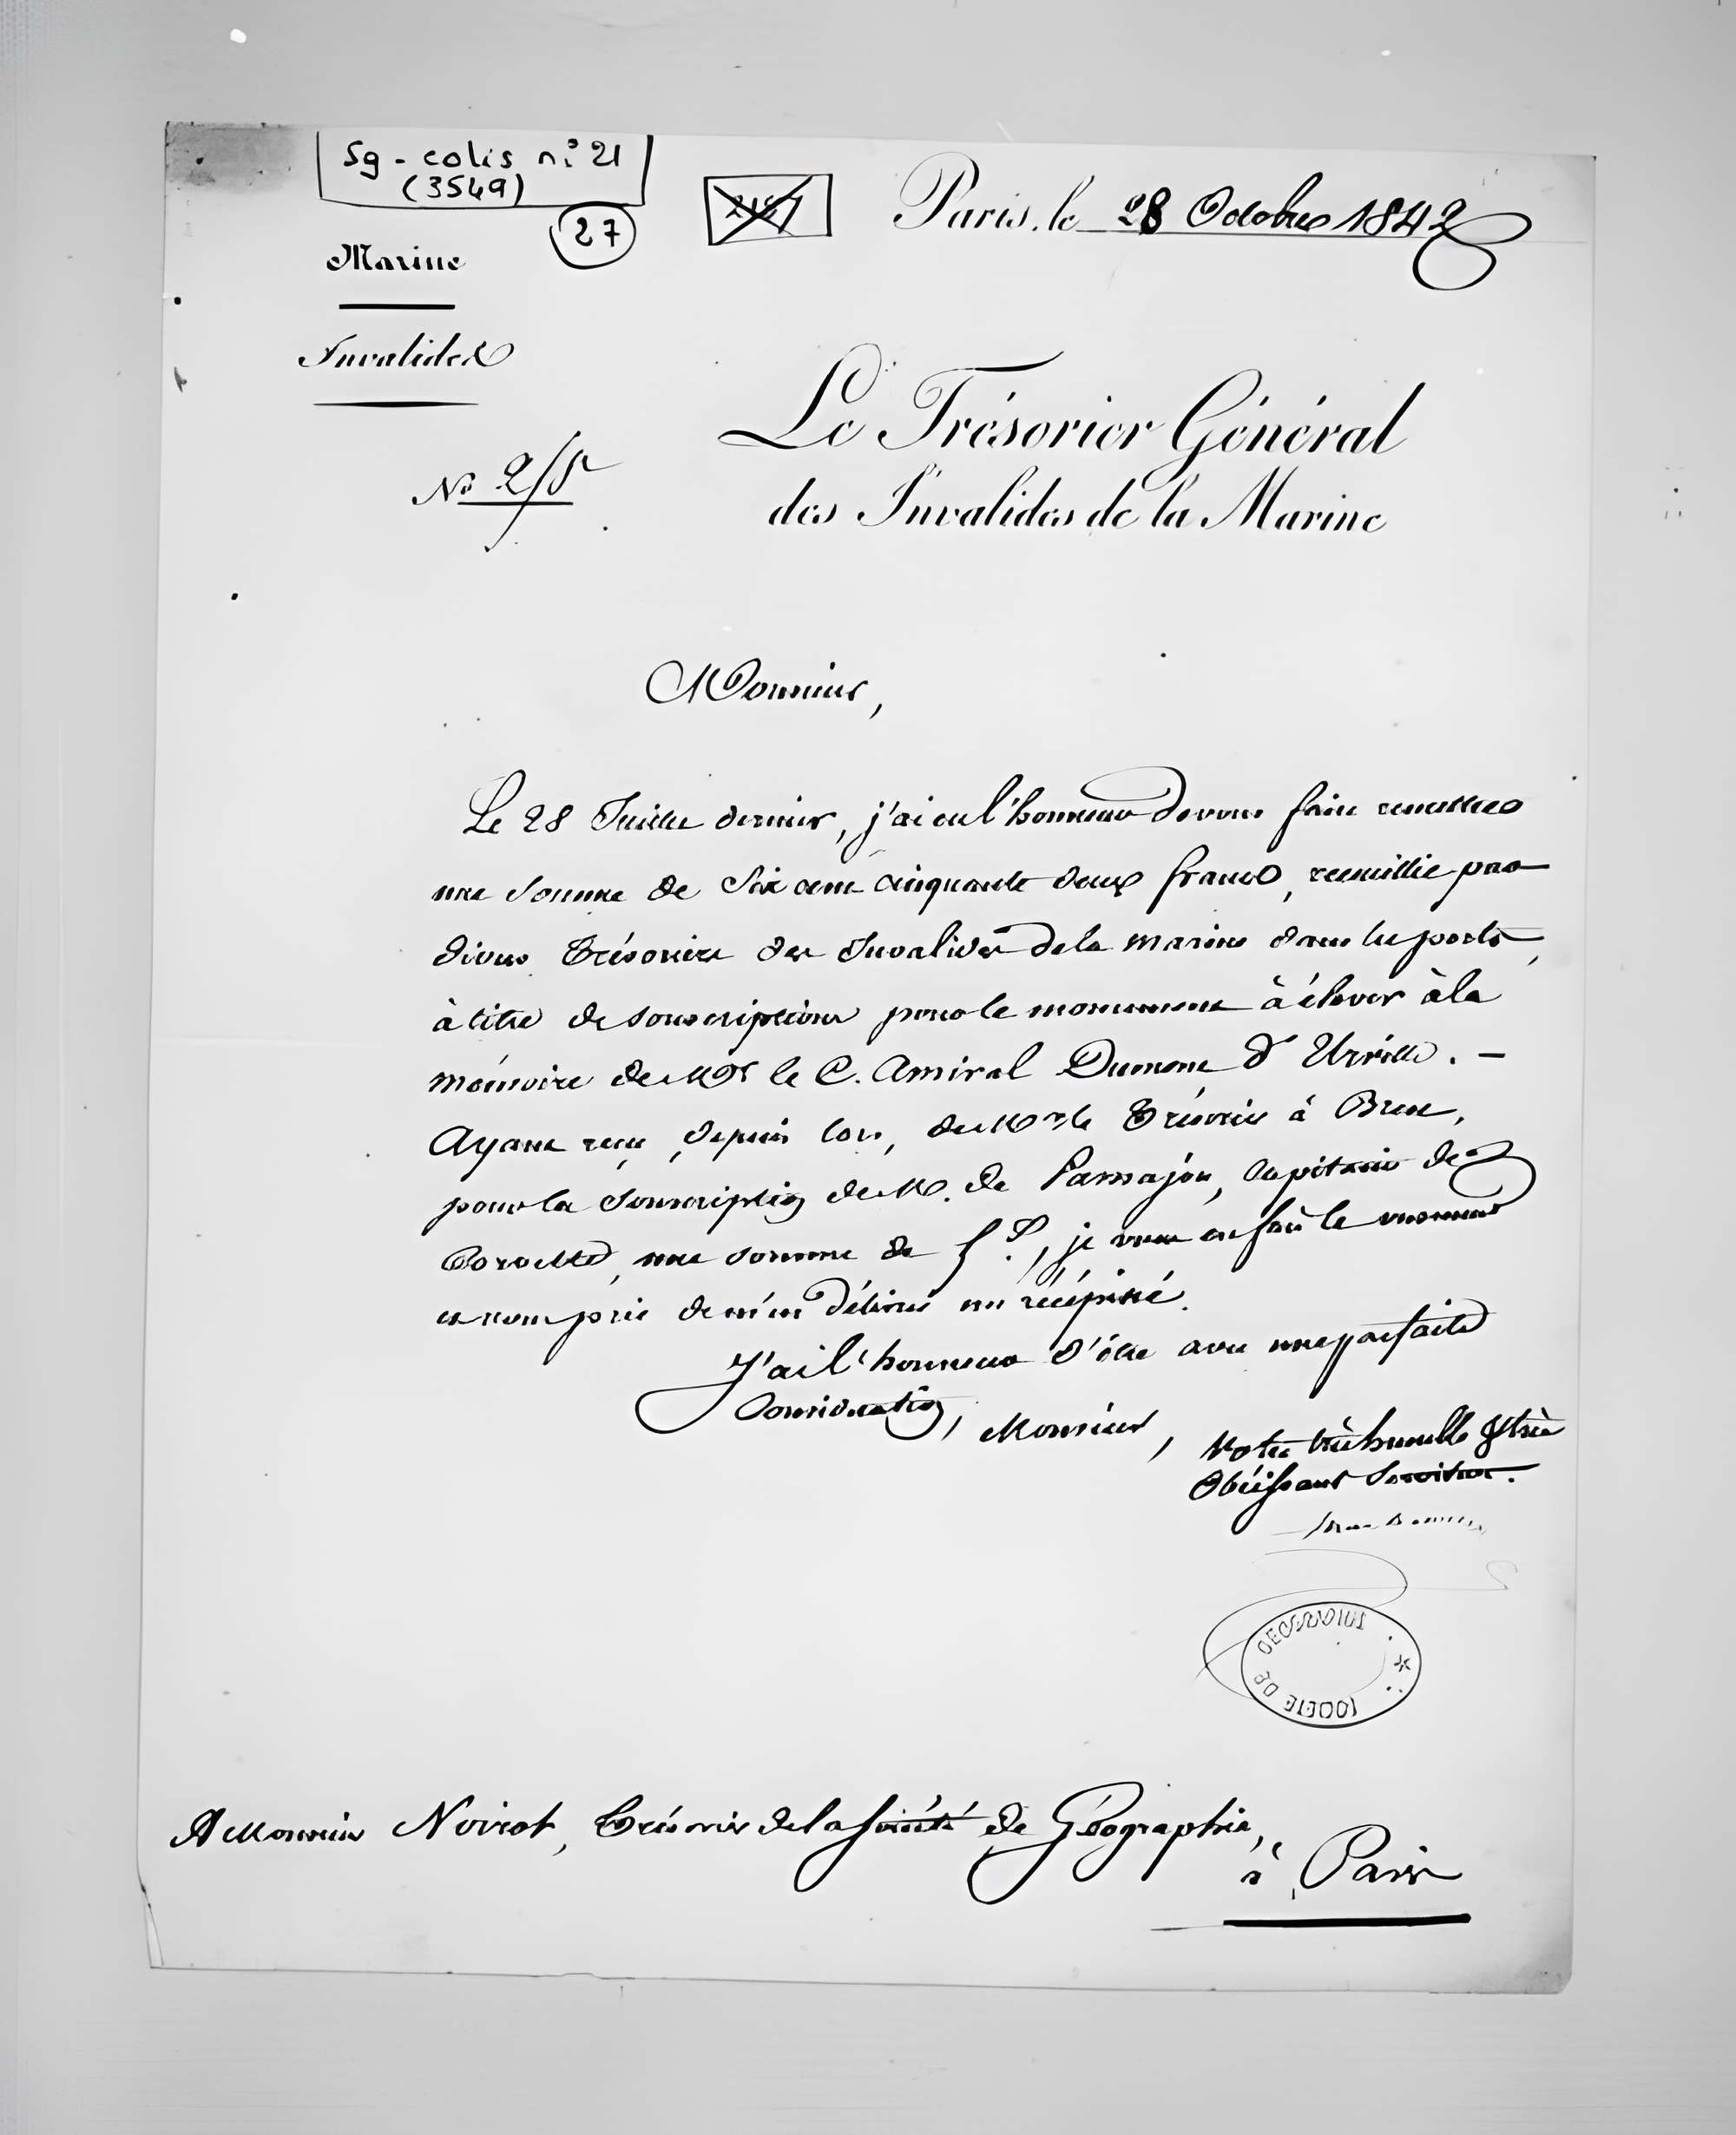 Sg - colis n° 21
(3549)
27
Paris, le 28 Octobre 1842
Marine
Invalides
Le Trésorier Général
des Invalides de la Marine
N°
Monsieur,
Le 28 Juillet dernier, j'ai eu l'honneur de vous faire remettre
une somme de Six cent cinquante deux francs, recueillie par
divers Trésoriers des Invalides de la marine dans les ports,
à titre de souscription pour le monument à élever à la
mémoire de Mr le C. Amiral Dumont d'Urville. —
Ayant reçu, depuis lors, de Mr le Trésorier à Brest,
pour la souscription de M. de Parnajon, Capitaine de
Corvette, une somme de 5 f., je vous en fais le versement
et vous prie de m'en délivrer un récépissé.
J'ai l'honneur d'être avec une parfaite
Considération, Monsieur, Votre très humble & très
Obéissant Serviteur.
SOCIETE DE GEOGRAPHIE
A Monsieur Noirot, Trésorier de la Société de Géographie,
à Paris